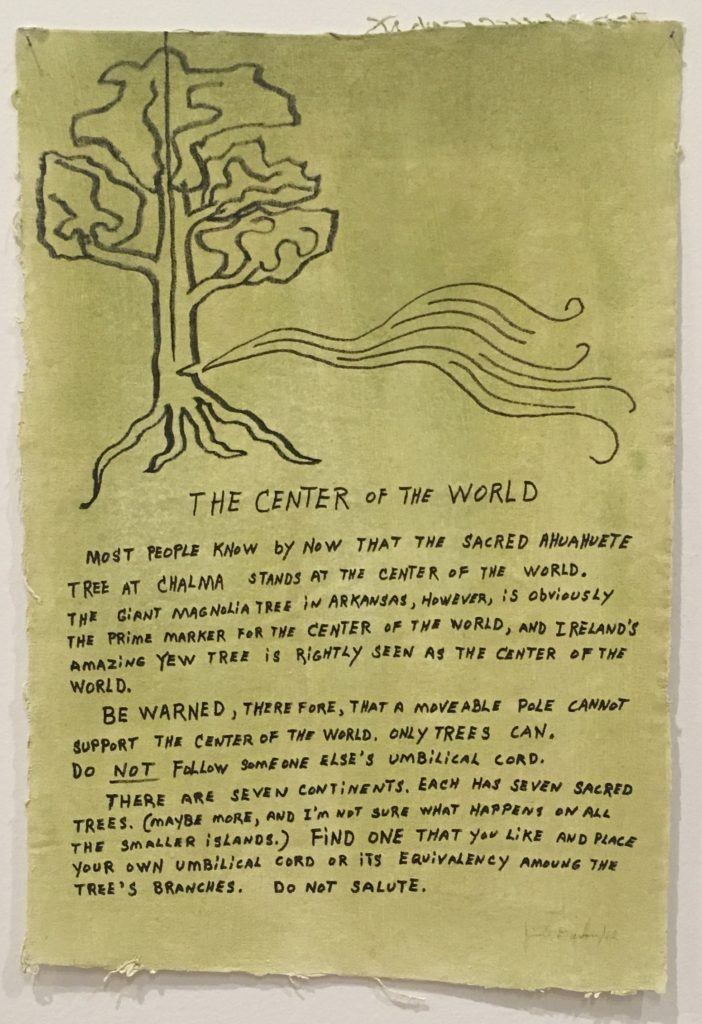 THE CENTER OF THE WORLD
MOST PEOPLE KNOW by NOW THAT THE SACRED AHUAHUETE
TREE AT CHALMA STANDS AT THE CENTER OF THE WORLD.
THE GIANT MAGNOLIA TREE IN ARKANSAS, HOWEVER, IS OBVIOUSLY
THE PRIME MARKER FOR THE CENTER OF THE WORLD, AND IRELAND'S
AMAZING YEW TREE IS RIGHTLY SEEN AS THE CENTER OF THE
WORLD.
BE WARNED, THEREFORE, THAT A MOVEABLE POLE CANNOT
SUPPORT THE CENTER OF THE WORLD. ONLY TREES CAN.
DO NOT FOLLOW SOMEONE ELSE'S UMBILICAL CORD.
THERE ARE SEVEN CONTINENTS. EACH HAS SEVEN SACRED
TREES. (MAYBE MORE, AND I'M NOT SURE WHAT HAPPENS ON ALL
THE SMALLER ISLANDS.) FIND ONE THAT YOU LIKE AND PLACE
YOUR OWN UMBILICAL CORD OR ITS EQUIVALENCY AMOUNG THE
TREE'S BRANCHES. DO NOT SALUTE.